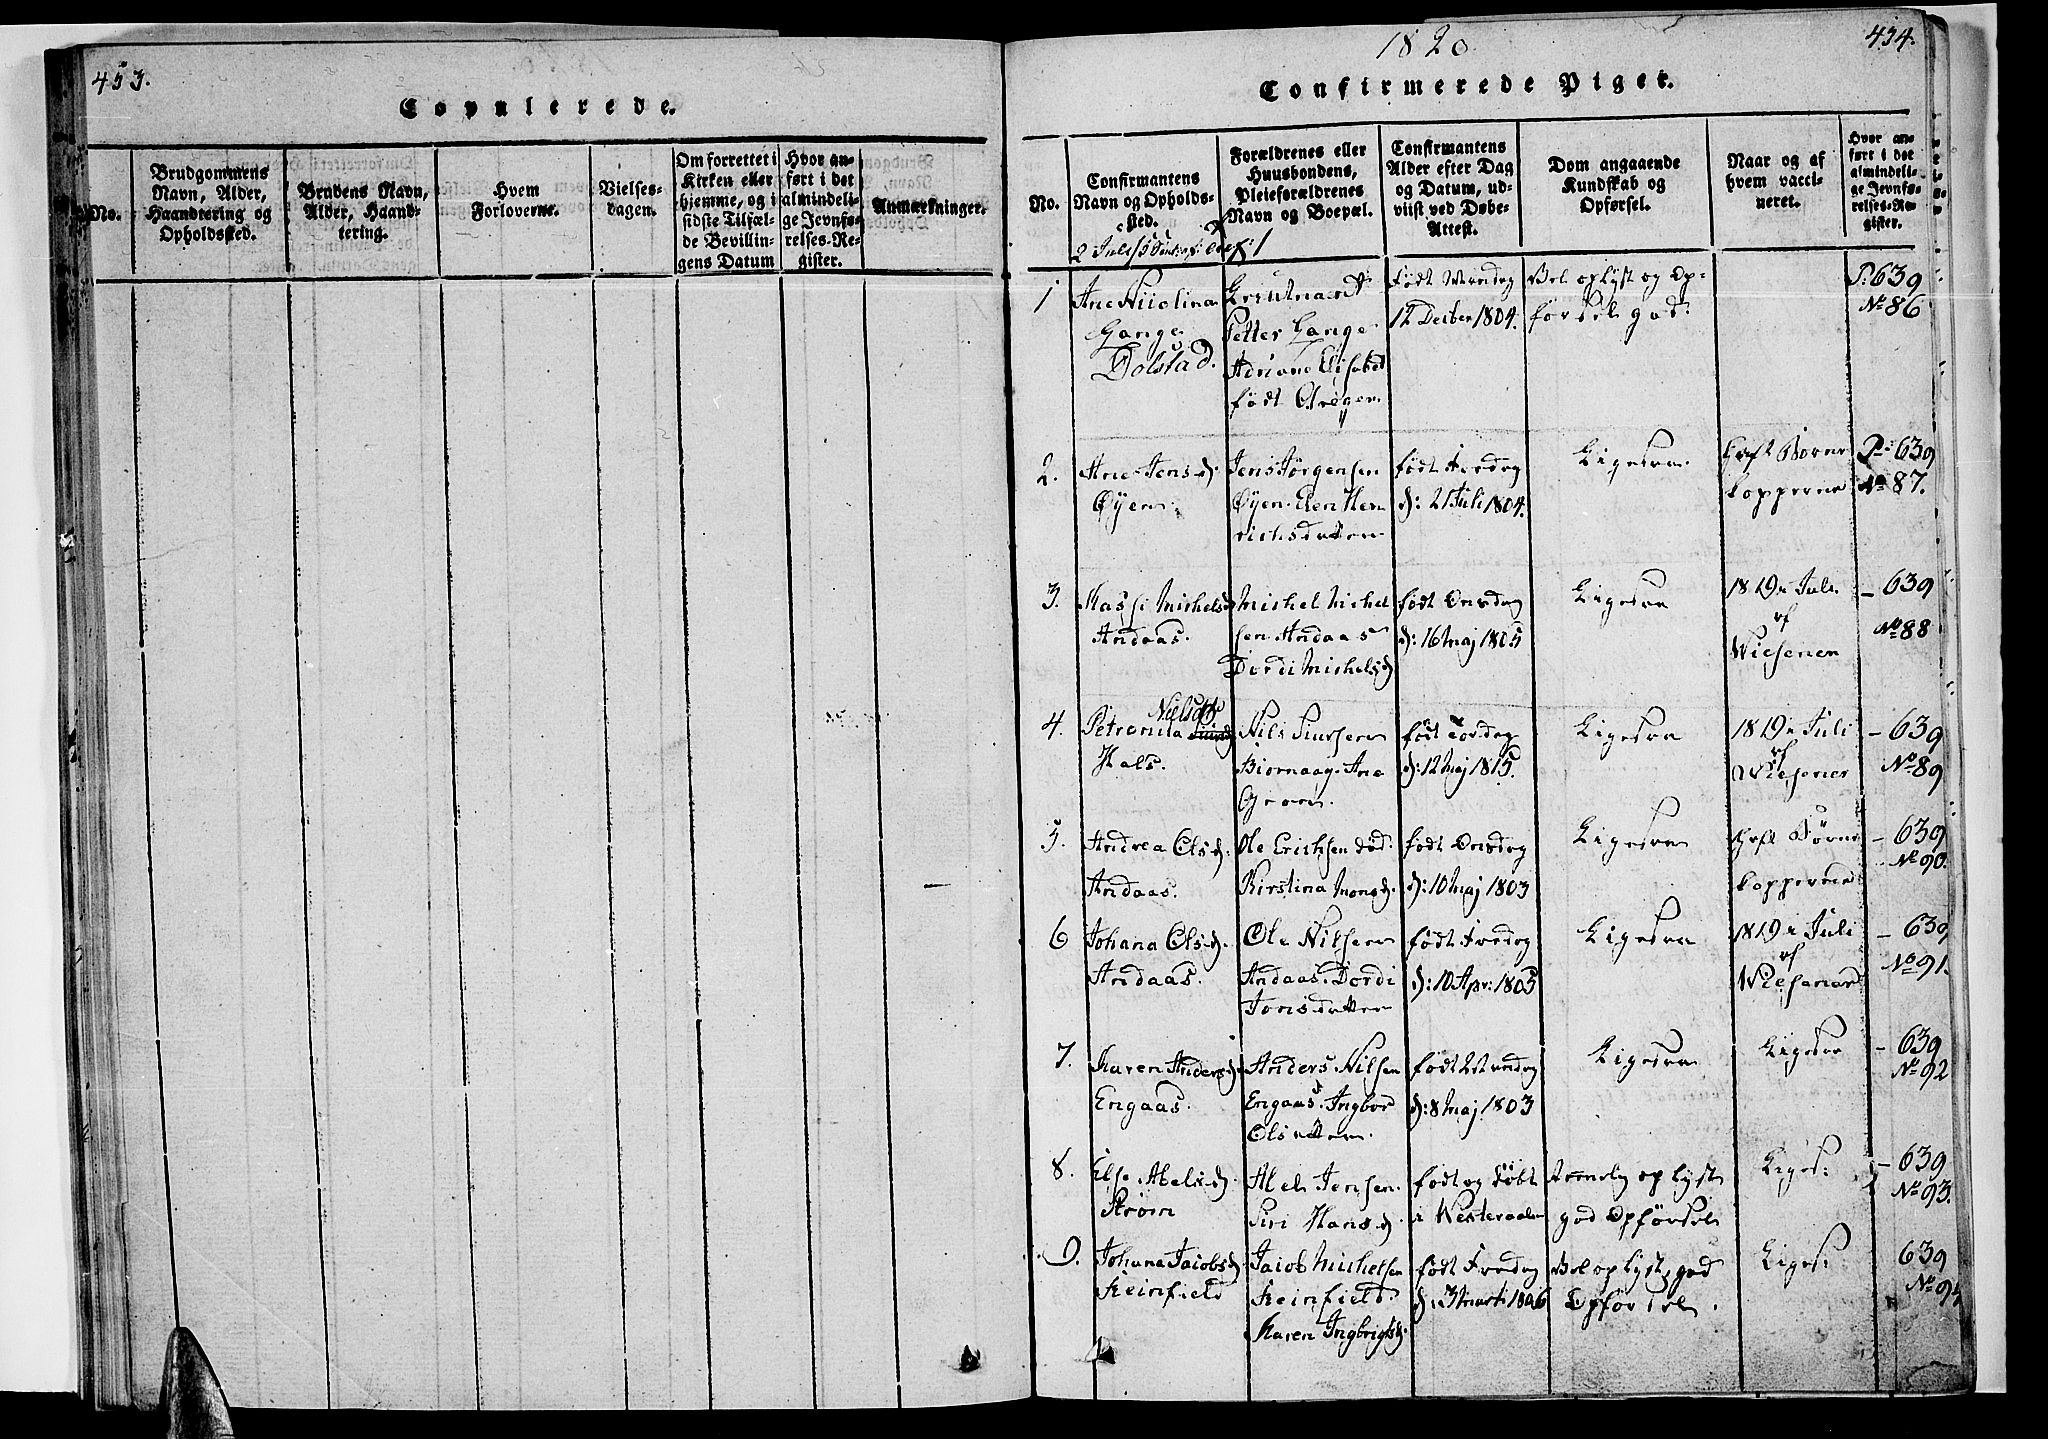 453.
Copulerede.
No.
Brudgommens
Navn, Alder,
Haandtering og
Opholdssted.
Brudens Navn,
Alder, Haand-
tering.
Hvem
Forloverne.
Vielses-
dagen.
Om forrettet i
Kirken eller
hjemme, og i
sidste Tilfæl-
de Bevillin-
gens Datum
Hvor an-
ført i det
almindeli-
ge Jevnfø-
relses-Re-
gister.
Anmærkninger.
1820
434.
Confirmerede Piger.
No.
Confirmantens
Navn og Opholds-
sted.
Forældrenes eller
Huusbondens,
Pleieforældrenes
Navn og Boepæl.
Confirmantens
Alder efter Dag
og Datum, ud-
viist ved Døbe-
Attest.
Dom angaaende
Kundskab og
Opførsel.
Naar og af
hvem vacci-
neret.
Hvor an-
ført i det
almindeli-
ge Jevnfø-
relses-Re-
gister.
2 Juli
1
Ane Nicolina
Gange
Dolstad.
Petter Gange
Adriane Elisabet
født
født
12 Decber 1804.
Vel oplyst og Op-
førsel god.
P: 639
No 86
2.
Ane Jensd.
Øyen
Jens Jørgensen
Øyen. Elen Hen
richsdatter
født Fredag
d: 21 Juli 1804.
Ligesaa
haft Børne
kopperne
P: 639
No 87.
3.
Massi Michelsd
Andaas.
Michel Michel
sen Andaas
Dordi Michelsd
født Onsdag
d: 16 Maj 1805
Ligesaa
1819 i Juli
af
Wiesener
- 639
No 88
4.
Nielsdtr
Petronila
Hals.
Nils Siursen
Biornaag. Ane
født Tordag
d: 12 Maj 1815.
Ligesaa
1819 i Juli
af
Wiesener
- 639
No 89
5.
Andrea Olsd.
Andaas.
Ole Erichsen død.
Kirstina Monsd.
født Onsdag
d: 10 Maj 1803
Ligesaa
haft Børne
kopperne
- 639
No 90.
6
Johana Olsd.
Andaas.
Ole Nilsen
Andaas. Dordi
Jonsdatter
født Fredag
d: 10 Apr: 1805
Ligesaa
1819 i Juli
af
Wiesener
- 639
No 91.
7.
Karen Andersd.
Engaas.
Anders Nilsen
Engaas. Ingbor
Olsdatter.
født
d: 8 Maj 1803
Ligesaa
Ligesaa
- 639
No 92
8.
Else Abelsd.
Strøm
Abel Jensen.
Siri Hansd.
født og døbt
i Westeraalen
oplyst
god Opførsel
Liges:
- 639
No 93.
9.
Johana Jacobsd.
Steinfield
Jacob Michelsen
Steinfield.
Karen Ingbrigtsd.
født Fredag
d. 3 Marti 1806
Vel oplyst, god
Opførsel.
Liges:
639
No 94